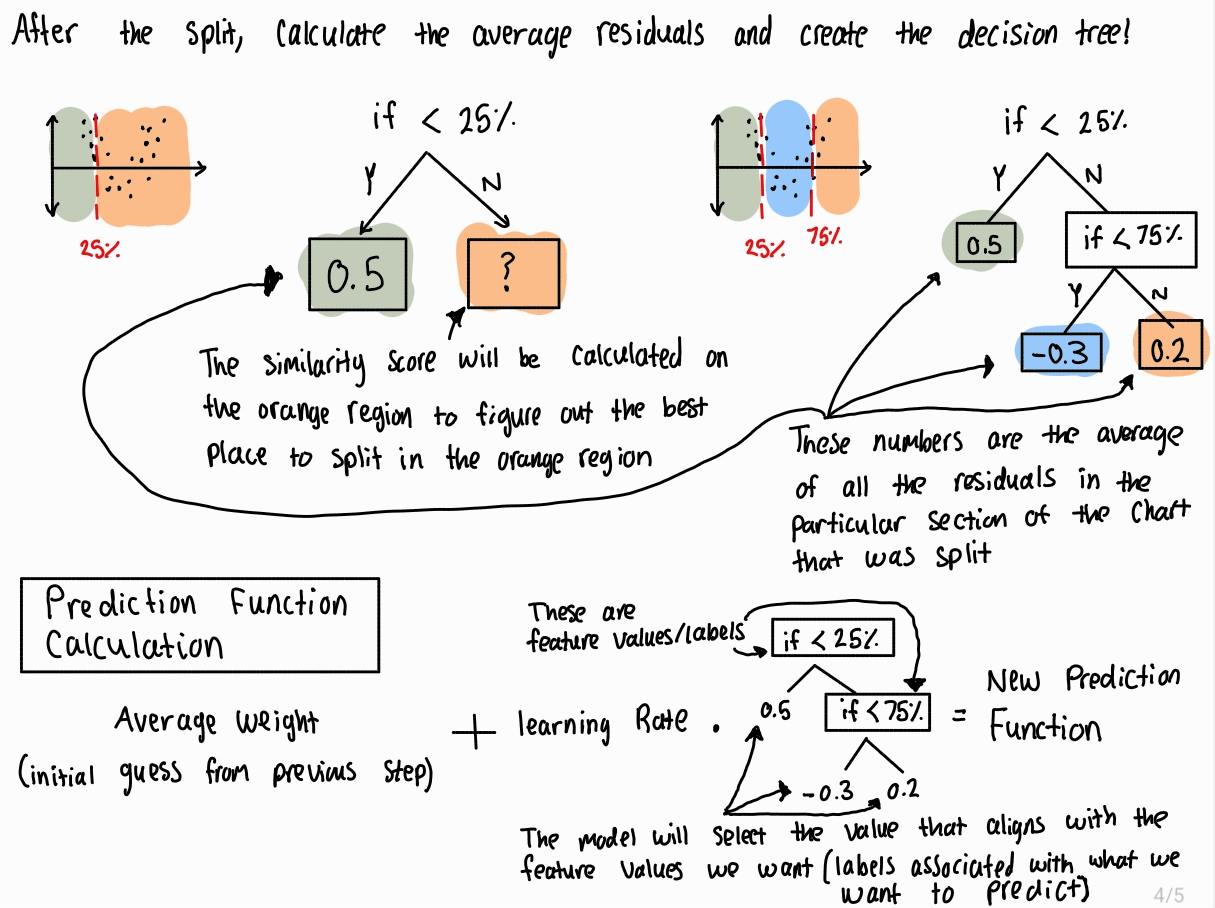 After the split, calculate the average residuals and create the decision tree!
25%
if < 25%
Y
N
0.5
?
The similarity score will be calculated on
the orange region to figure out the best
place to split in the orange region
25%
75%
if < 25%
Y
N
0.5
if < 75%
Y
N
-0.3
0.2
These numbers are the average
of all the residuals in the
particular section of the chart
that was split
Prediction Function
Calculation
Average weight
(initial guess from previous step)
+
learning Rate .
These are
feature values/labels
if < 25%
0.5
if < 75%
-0.3
0.2
=
New Prediction
Function
The model will select the value that aligns with the
feature values we want (labels associated with what we
want to predict)
4/5